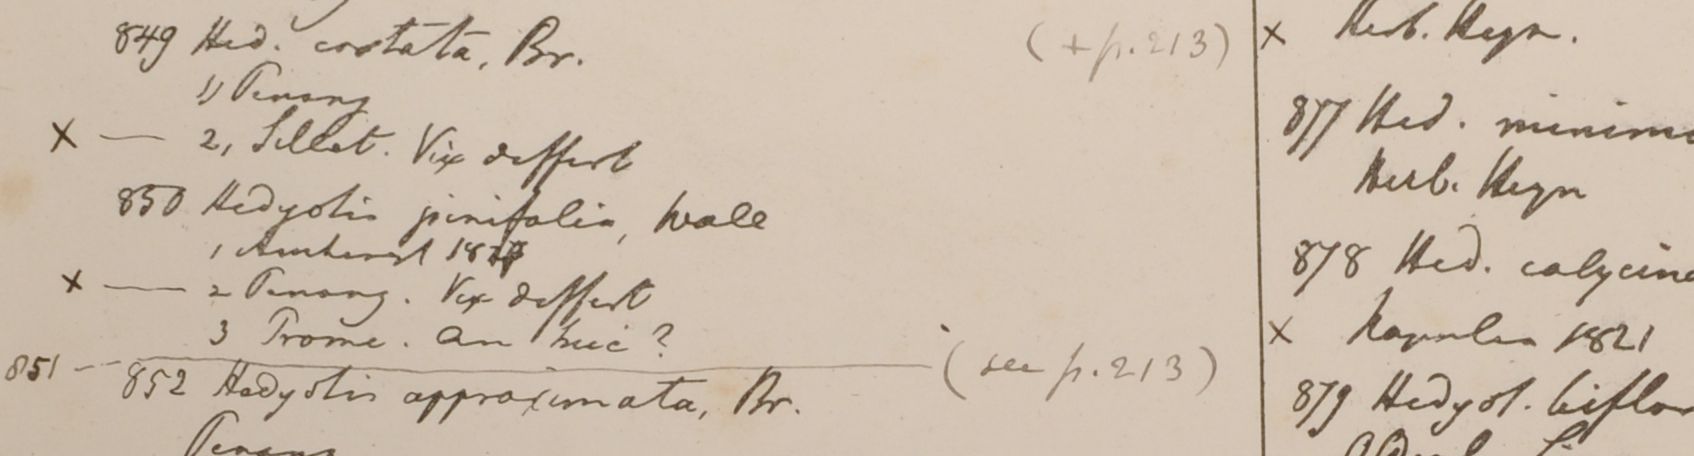 849 Hed. costata, Br. (+ p. 213)
1) Penang
X — 2, Sillet. Vix differt
850 Hedyotis pinifolia, Wall
1 Amherst
X — 2 Penang. Vix differt
3 Prome. An huic?
851 — (see p. 213)
852 Hedyotis approximata, Br.
Penang
X Herb. Heyn.
877 Hed. minima
Herb. Heyn
878 Hed. calycina
X Napalia 1821
879 Hedyot. biflor